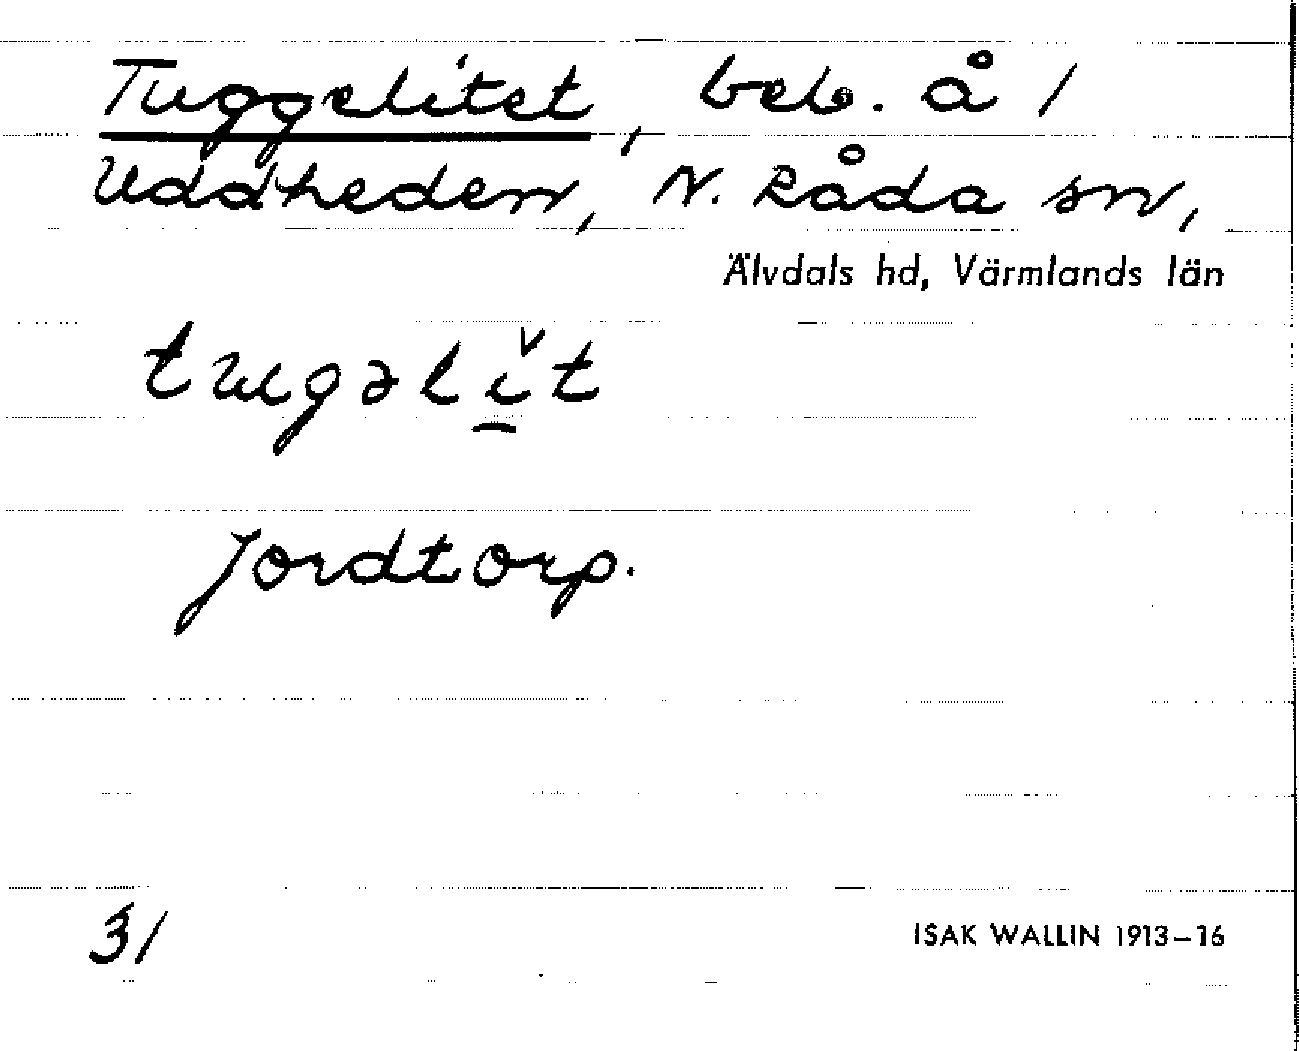 Tuggelitet, beb. å 1
Uddheden, N. Råda sn,
Älvdals hd, Värmlands län
tugəlǐ̠t
Jordtorp.
31
ISAK WALLIN 1913–16